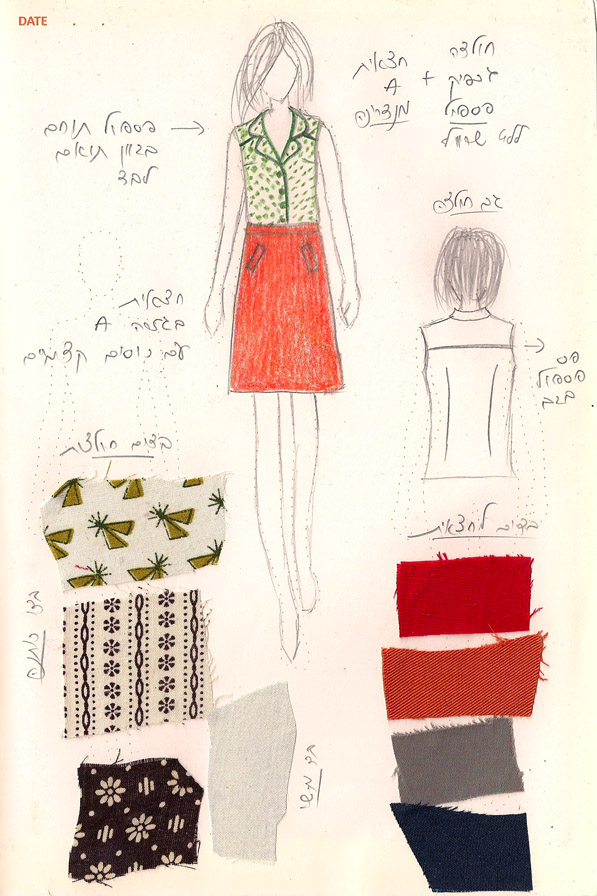 DATE
חולצה
חצאית
A +
פספול
מנדרינה
ללא שרוול
פספול תוחם
בגוון תואם
לבד
גב חולצה
חצאית
בגזרה A
עם כיסים קדמיים
פס
פספול
בגב
בדים חולצות
בדים לחצאית
בד כותנה
בד משי